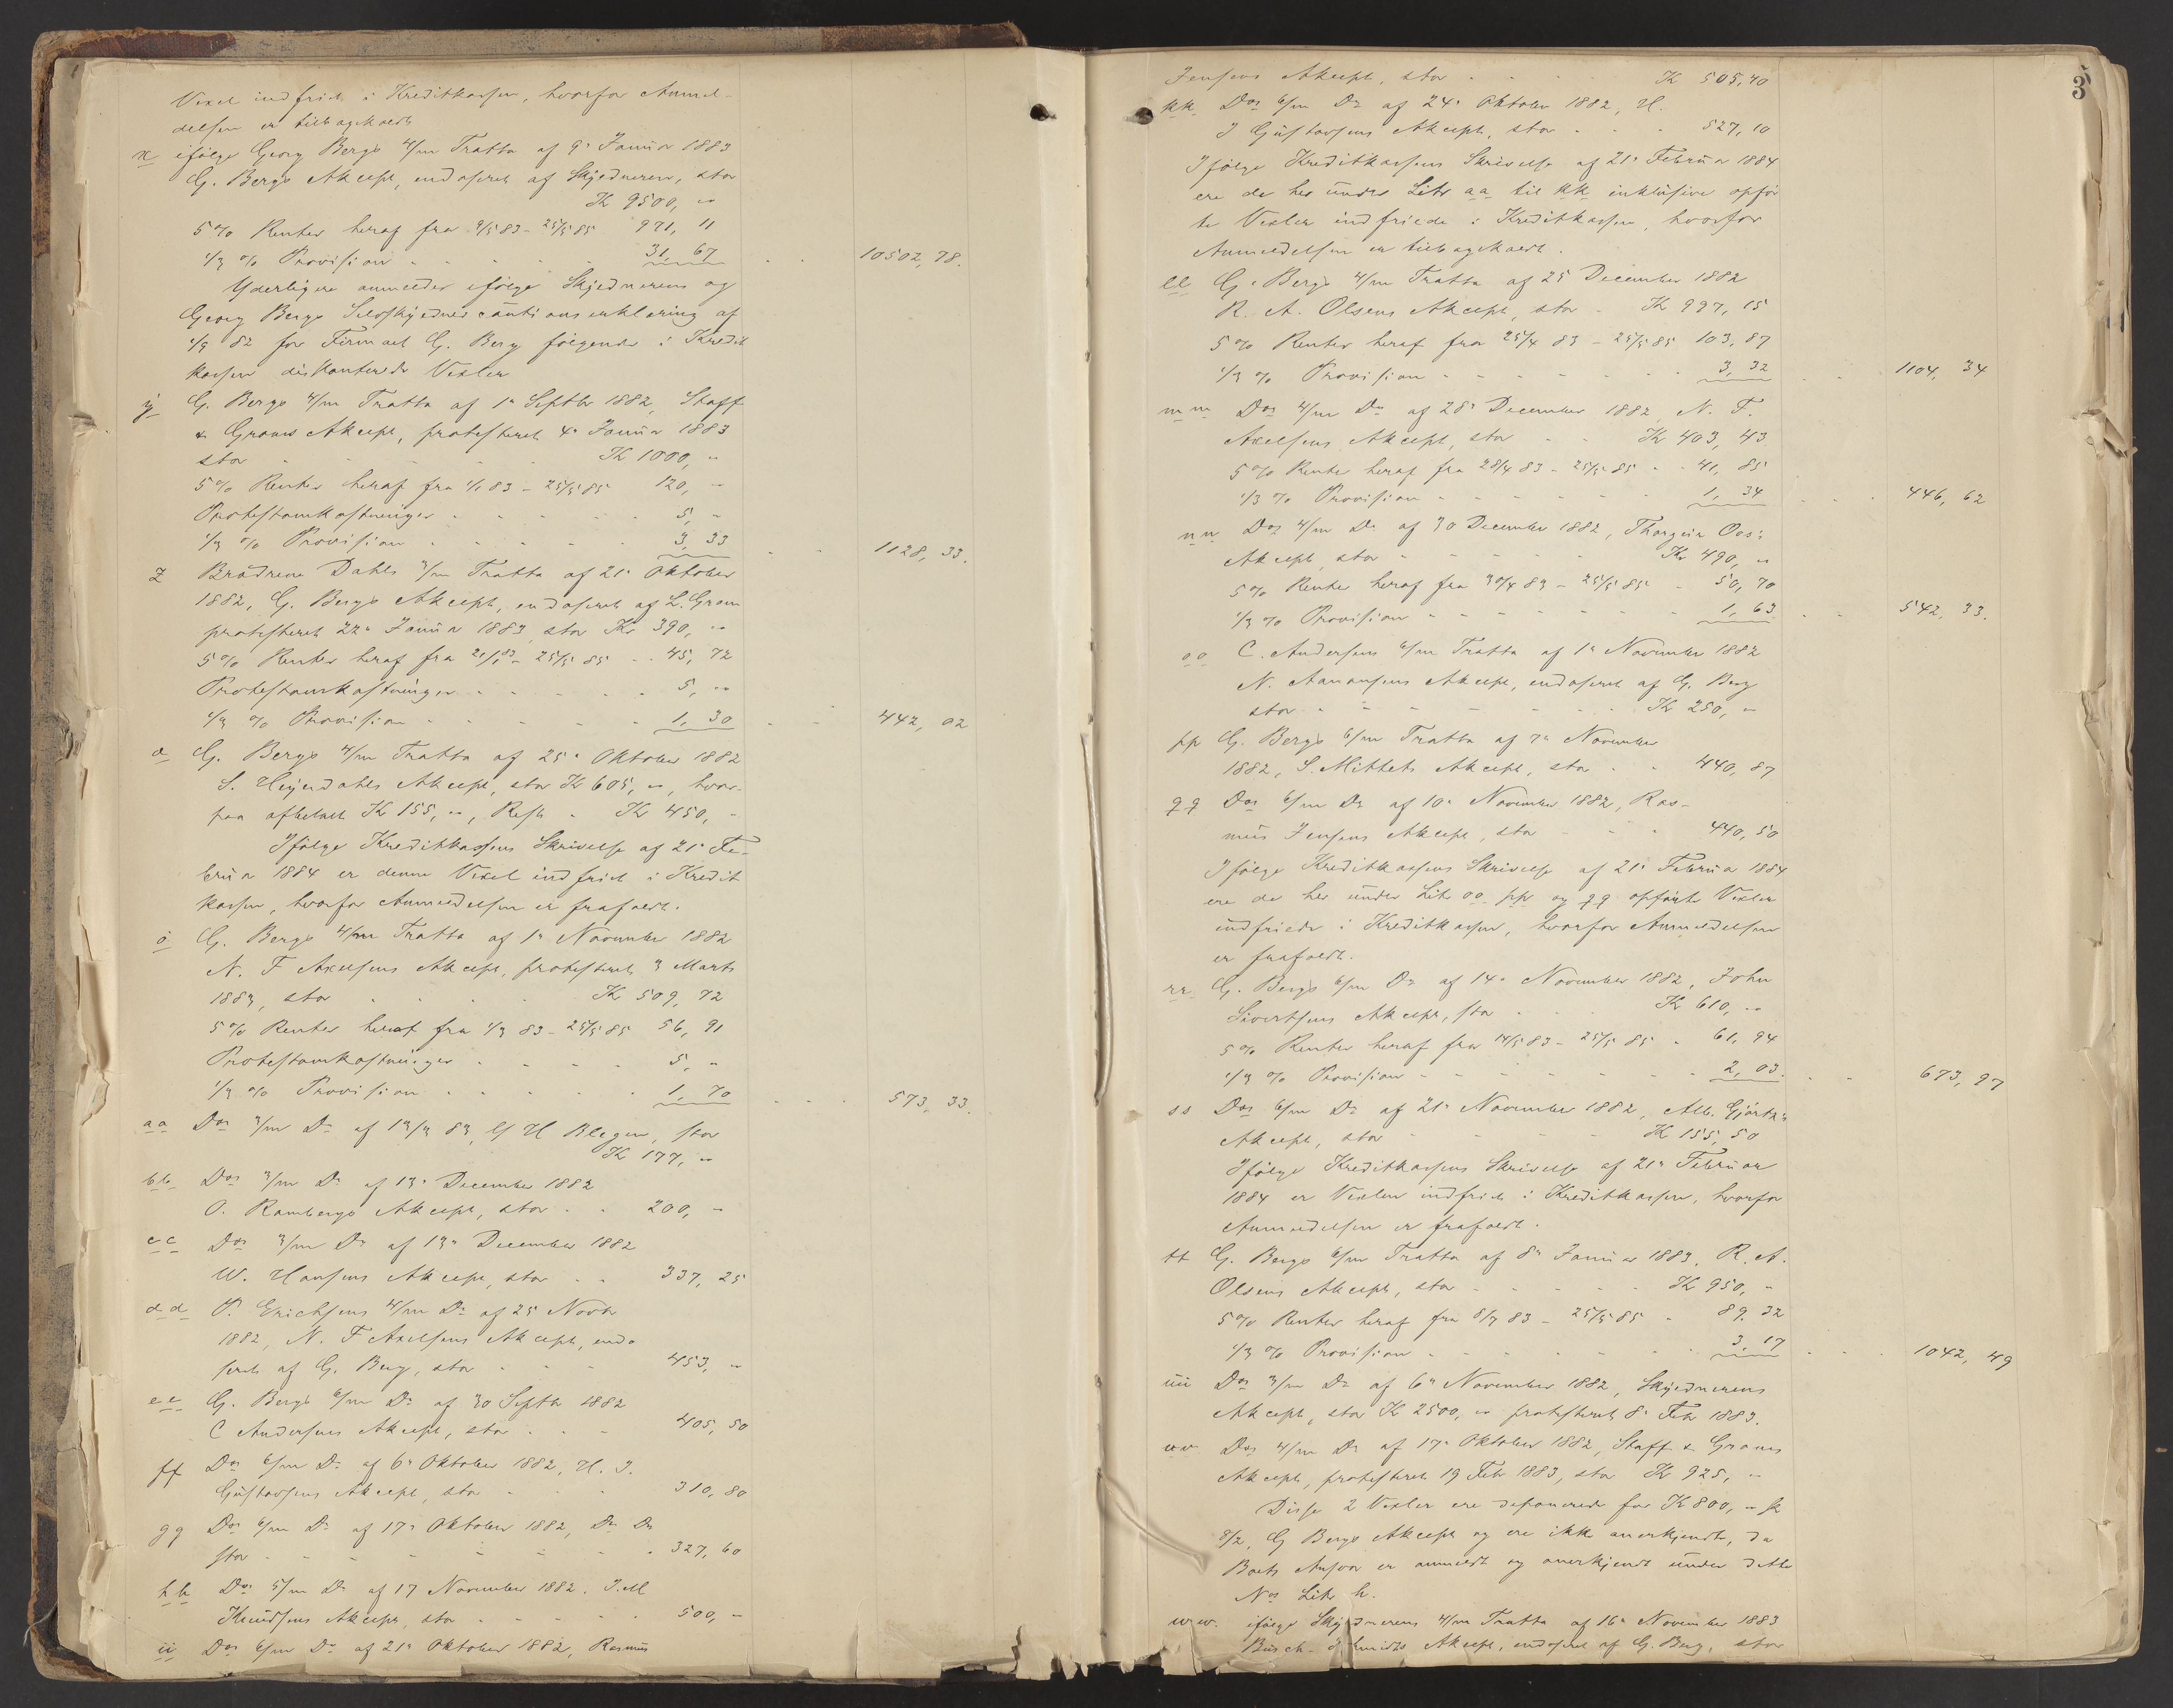 Vexel indfriet i Kreditkassen, hvorfor Anmel-
delsen er tilbagekaldt
x ifølge Georg Bergs 4/m Tratta af 9. Januar 1883
G. Bergs Akcept, endosseret af Skyldneren, stor
Kr 9500, "
5 % Renter heraf fra 9/5 83 - 25/5 85 971, 11
1/3 % Provision 31, 67 10502,78.
Yderligere anmeldes ifølge Skyldnerens og
Georg Bergs Selvskyldnercautionserklæring af
1/9 82 for Firmaet G. Berg følgende i Kredit
kassen diskonterede Vexler
y G. Bergs 4/m Tratta af 1. Septbr 1882, Staff
& Grams Akcept, protesteret 4. Januar 1883
stor Kr 1000, "
5 % Renter heraf fra 1/1 83 - 25/5 85 120, "
Protestomkostninger 5, "
1/3 % Provision 3, 33 1128, 33.
z Brødrene Dahls 3/m Tratta af 21. Oktober
1882, G. Bergs Akcept, endosseret af L. Gram
protesteret 22. Januar 1883, stor Kr 390, "
5 % Renter heraf fra 21/1 83 - 25/5 85 45, 72
Protestomkostninger 5, "
1/3 % Provision 1, 30 442, 02
æ G. Bergs 4/m Tratta af 25. Oktober 1882
S. Heyerdahls Akcept, stor Kr 605, ", hvor-
paa afbetalt Kr 155, ", Rest Kr 450, "
Ifølge Kreditkassens Skrivelse af 21. Fe-
bruar 1884 er denne Vexel indfriet i Kredit
kassen, hvorfor Anmeldelsen er frafaldt.
ø G. Bergs 4/m Tratta af 1. November 1882
N. F Axelsens Akcept, protesteret 3 Marts
1883, stor Kr 509, 72
5 % Renter heraf fra 1/3 83 - 25/5 85 56, 91
Protestomkostninger 5, "
1/3 % Provision 1, 70 573, 33.
aa Dos 3/m Do af 13/3 83, H Blegen, stor
Kr 177, "
bb Dos 3/m Do af 13. December 1882
O. Rambergs Akcept, stor 200, "
cc Dos 3/m Do af 13. December 1882
W. Hansens Akcept, stor 337, 25
dd P. Erichsens 4/m Do af 25 Novbr
1882, N. F Axelsens Akcept, endo
seret af G. Berg, stor 453, "
ee G. Bergs 6/m Do af 30 Septbr 1882
C Andersens Akcept, stor 405, 50
ff Dos 6/m Do af 6. Oktober 1882, H. J.
Gustavsens Akcept, stor 310, 80
gg Dos 6/m Do af 17. Oktober 1882, Do Do
stor 327, 60
hh Dos 5/m Do af 17 November 1882. J. M
Knudsens Akcept, stor 500, "
ii Dos 6/m Do af 21. Oktober 1882, Rasmus
3
Jensens Akcept, stor Kr 505,40
kk Dos 6/m Do af 24. Oktober 1882, H.
J Gustavsens Akcept, stor 527, 10
Ifølge Kreditkassens Skrivelse af 21. Februar 1884
ere de her under Litr aa til kk inklusive opfør
te Vexler indfriede i Kreditkassen, hvorfor
Anmeldelsen er tilbagekaldt.
ll G. Bergs 4/m Tratta af 25 December 1882
R. A. Olsens Akcept, stor Kr 997, 15
5 % Renter heraf fra 25/4 83 - 25/5 85 103, 87
1/3 % Provision 3, 32 1104, 34
mm Dos 4/m Do af 28. December 1882, N. F.
Axelsens Akcept, stor Kr 403, 43
5 % Renter heraf fra 28/4 83 - 25/5 85 41, 85
1/3 % Provision 1, 34 446, 62
nn Dos 4/m Do af 30 December 1882, Thorgeir Oos's
Akcept, stor Kr 490, "
5 % Renter heraf fra 30/4 83 - 25/5 85 50, 70
1/3 % Provision 1, 63 542, 33.
oo C. Andersens 6/m Tratta af 1. November 1882
N. Aanonsens Akcept, endosseret af G. Berg
stor Kr 250, "
pp G. Bergs 6/m Tratta af 7. November
1882, S. Mittets Akcept, stor 440, 87
qq Dos 6/m Do af 10. November 1882, Ras-
mus Jensens Akcept, stor 440, 50
Ifølge Kreditkassens Skrivelse af 21. Februar 1884
ere de her under Litr oo pp og qq opførte Vexler
indfriede i Kreditkassen, hvorfor Anmeldelsen
er frafaldt.
rr G. Bergs 6/m Do af 14. November 1882, John
Sivertsens Akcept, stor Kr 610, "
5 % Renter heraf fra 14/5 83 - 25/5 85 61, 94
1/3 % Provision 2, 03. 673, 97
ss Dos 6/m Do af 21. November 1882, Alb. Gjörtz's
Akcept, stor Kr 155, 50
Ifølge Kreditkassens Skrivelse af 21. Februar
1884 er Vexlen indfriet i Kreditkassen, hvorfor
Anmeldelsen er frafaldt.
tt G. Bergs 6/m Tratta af 8. Januar 1883, R. A.
Olsens Akcept, stor Kr 950, "
5 % Renter heraf fra 8/7 83 - 25/5 85 89, 32
1/3 % Provision 3, 17 1042, 49
uu Dos 3/m Do af 6. November 1882, Skyldnerens
Akcept, stor Kr 2500, " protesteret 8. Febr 1883.
vv Dos 4/m Do af 17. Oktober 1882, Staff & Grams
Akcept, protesteret 19 Febr 1883, stor Kr 925, "
Disse 2 Vexler ere deponerede for Kr 800, " pr
8/2, G Bergs Akcept og ere ikke anerkjendte, da
Boets Ansvar er anmeldt og anerkjendt under dette
Nos Litr h.
ww. ifølge Skyldnerens 4/m Tratta af 16. November 1883
Busch-Schmidts Akcept, endosseret af G. Berg, stor